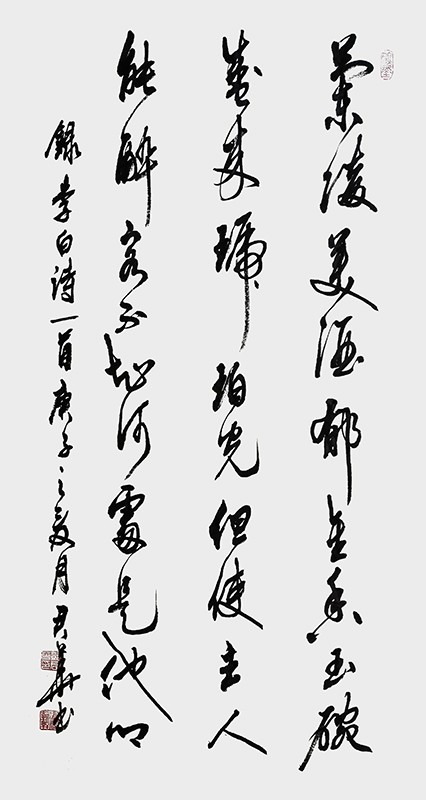 蘭陵美酒郁金香玉碗
盛來琥珀光但使主人
能醉客不知何處是他鄉
錄李白詩一首庚子之夏月君華书